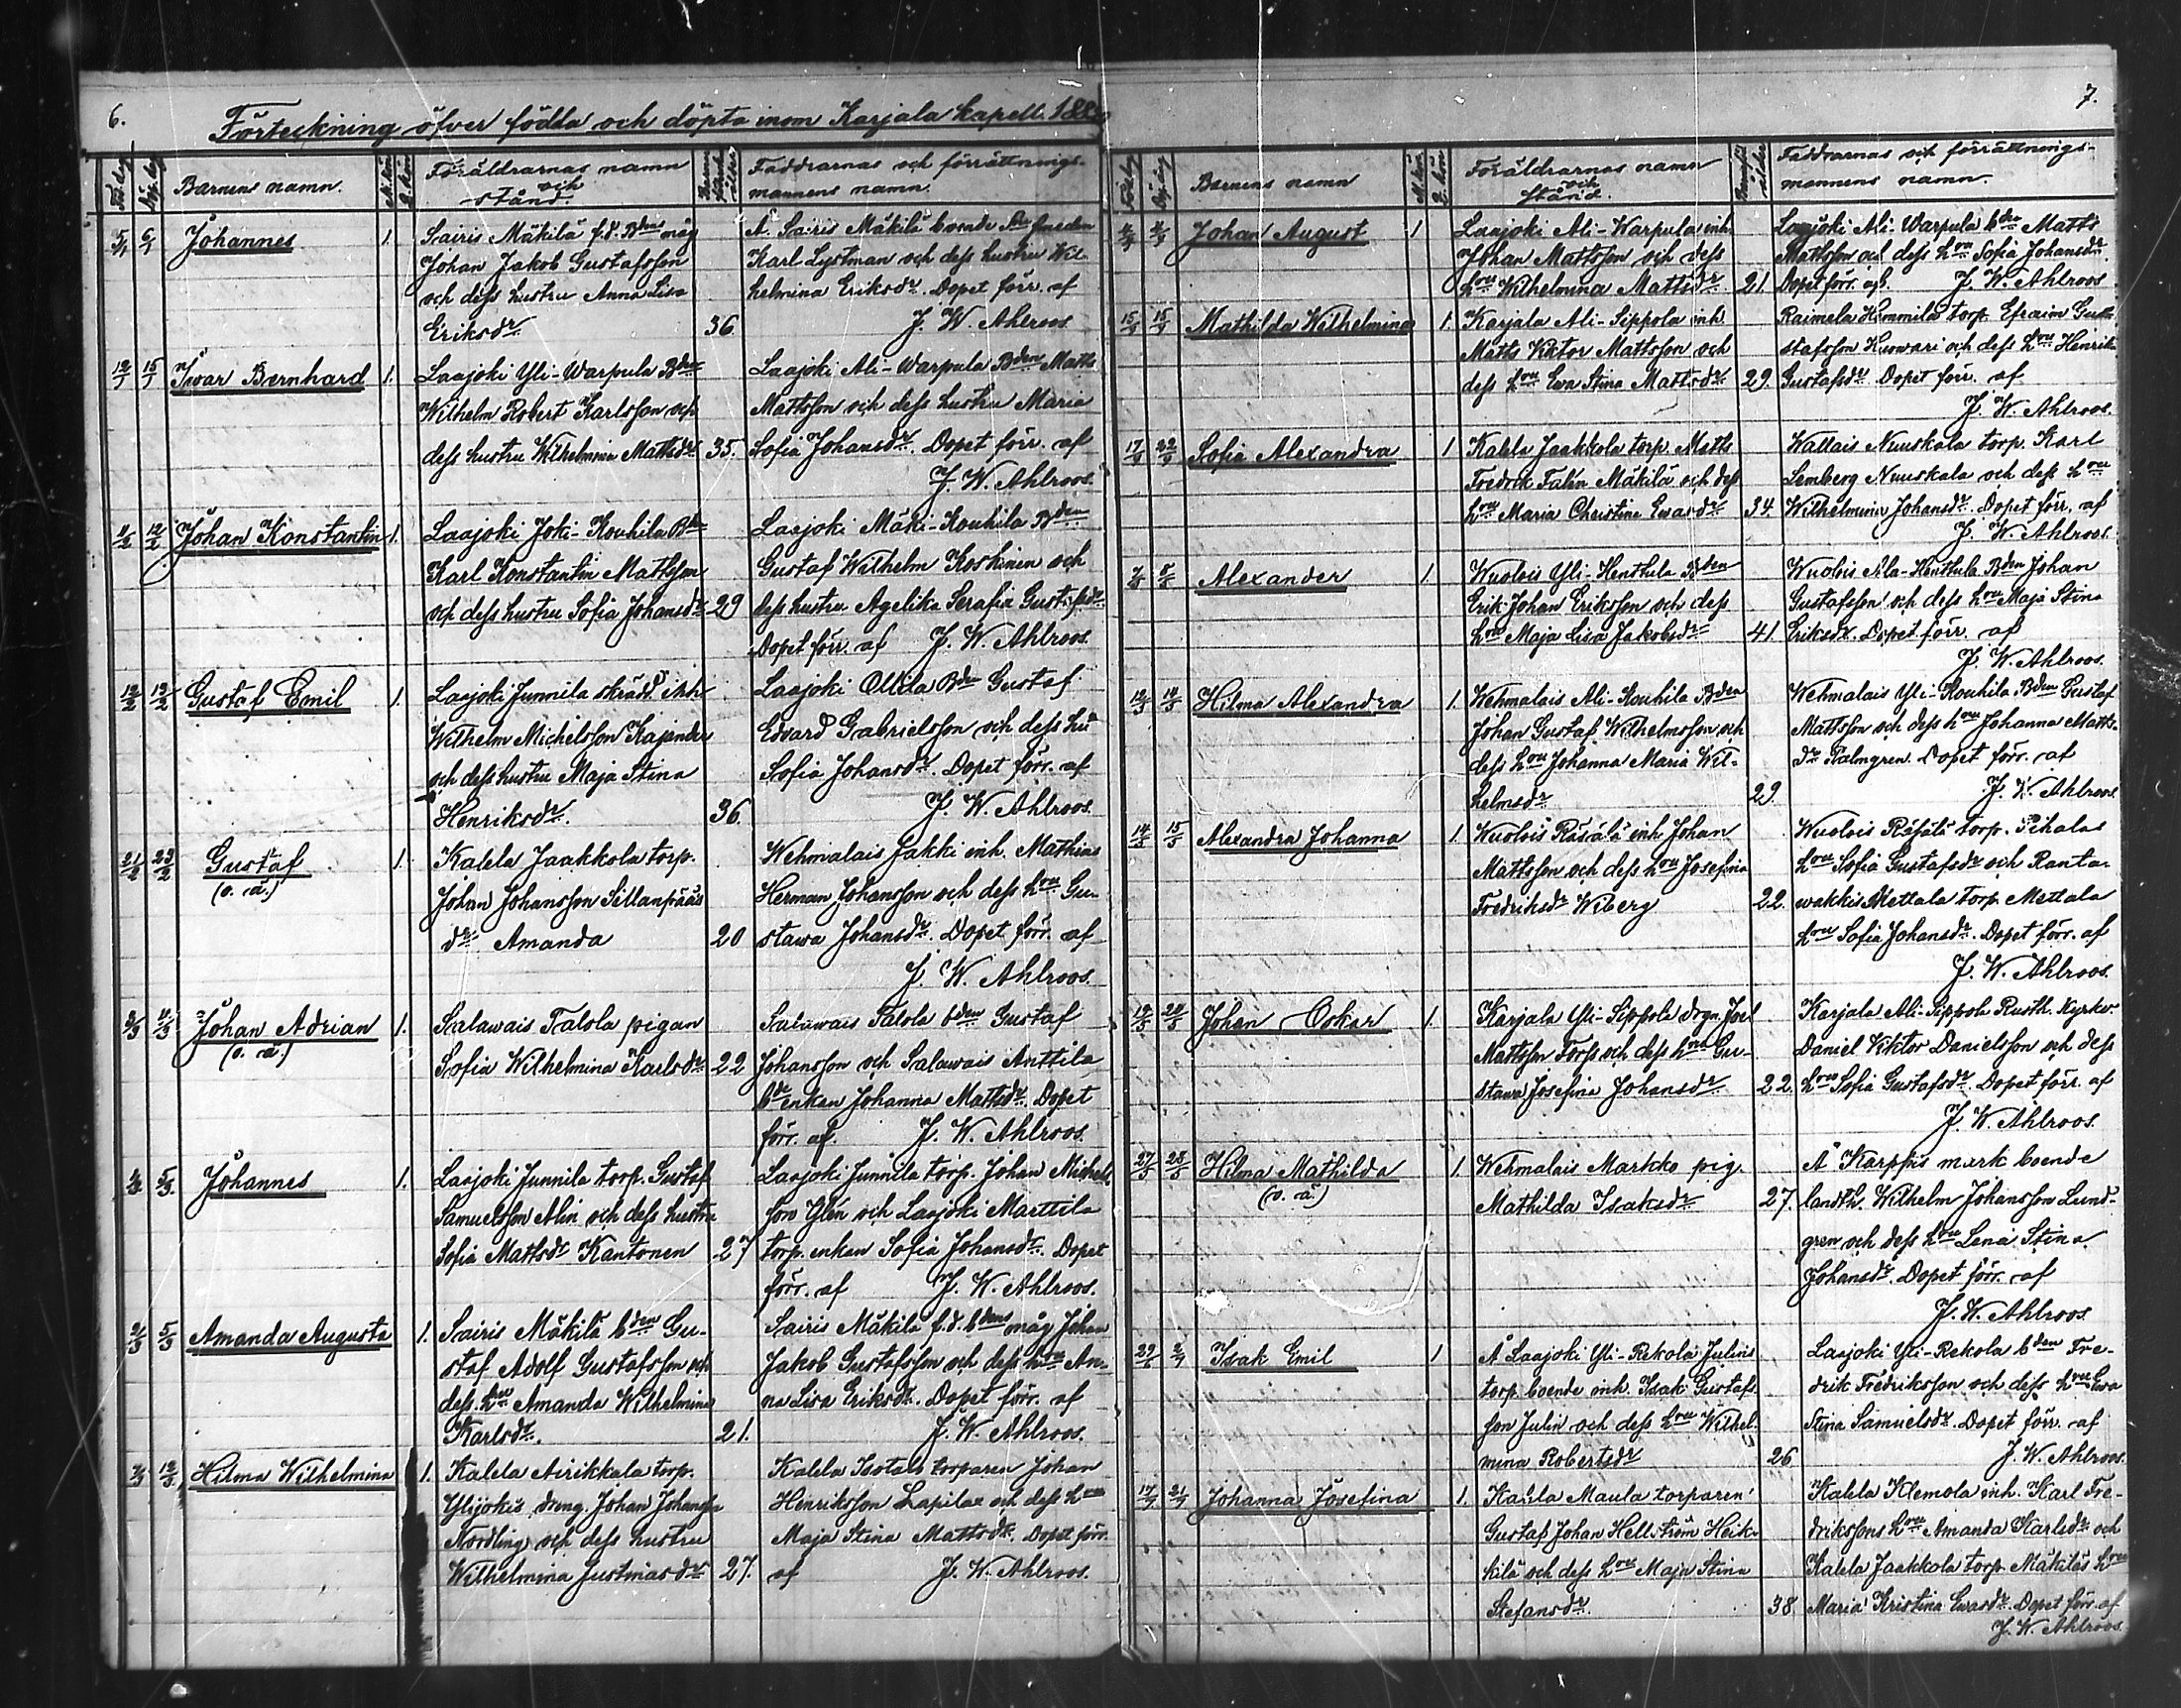 6.
Förteckning öfver födda och döpta inom Karjala kapell. 188
Barnens namn.
M. kön
Q. kön
Föräldrarnas namn
och
stånd.
Faddrarnas och förrättnings-
mannens namn.
5/1 6/1 Johannes 1.
Sairis Mäkilä f.d. Bdens måg
Johan Jakob Gustafsson
och dess hustru Anna Lisa
Eriksdr. 36.
A. Sairis Mäkilä boende
Karl Lystman och dess hustru Wil-
helmina Eriksdr. Dopet förr. af
J. W. Ahlroos.
12/1 15/1 Iwar Bernhard 1.
Laajoki Yli-Warpula Bden
Wilhelm Robert Karlsson och
dess hustru Wilhelmina Mattsdr. 35.
Laajoki Ali-Warpula Bden Matts
Mattsson och dess hustru Maria
Sofia Johansdr. Dopet förr. af
J. W. Ahlroos.
11/2 12/2 Johan Konstantin 1.
Laajoki Joki-Kouhila Bden
Karl Konstantin Mattsson
och dess hustru Sofia Johansdr. 29
Laajoki Mäki-Kouhila Bden
Gustaf Wilhelm Koskinen och
dess hustru Agelika Serafia Gustafsdr.
Dopet förr. af J. W. Ahlroos.
12/2 13/2 Gustaf Emil 1.
Laajoki Junnila skrädd. inh.
Wilhelm Michelsson Kajander
och dess hustru Maja Stina
Henriksdr. 36.
Laajoki Ollila Bden Gustaf
Edvard Gabrielsson och dess hu
Sofia Johansdr. Dopet förr. af
J. W. Ahlroos.
21/2 23/2 Gustaf 1.
(o. ä.)
Kalela Jaakkola torp.
Johan Johansson Sillanpääs
dr. Amanda 20
Wehmalais Jakki inh. Mathias
Herman Johansson och dess hru Gu-
stawa Johansdr. Dopet förr. af
J. W. Ahlroos.
Johan Adrian 1.
(o. ä.)
Salawais Talola pigan
Sofia Wilhelmina Karlsdr. 22
Salawais Talola bden Gustaf
Johansson och Salawais Anttila
bde enkan Johanna Mattsdr. Dopet
förr. af J. W. Ahlroos.
Johannes 1.
Laajoki Junnila torp. Gustaf
Samuelsson Alin och dess hustru
Sofia Mattsdr. Kantonen 27
Laajoki Junnila torp. Johan Michels-
son Glén och Laajoki Marttila
torp. enkan Sofia Johansdr. Dopet
förr. af J. W. Ahlroos.
2/3 5/3 Amanda Augusta 1.
Sairis Mäkilä bden Gu-
staf Adolf Gustafsson och
dess hru Amanda Wilhelmina
Karlsdr. 21.
Sairis Mäkilä f.d. bdens måg Johan
Jakob Gustafsson och dess hru An-
na Lisa Eriksdr. Dopet förr. af
J. W. Ahlroos.
7/3 12/3 Hilma Wilhelmina 1.
Kalela Airikkala torp.
Ylijokis dreng. Johan Johansson
Nordling och dess hustru
Wilhelmina Justinasdr. 27.
Kalela Isotalo torparen Johan
Henriksson Lapila och dess hru
Maja Stina Mattsdr. Dopet förr.
af J. W. Ahlroos.
7.
Barnens namn
M. kön
Q. kön
Föräldrarnas namn
och
stånd.
Faddrarnas och förrättnings-
mannens namn.
Johan August 1
Laajoki Ali-Warpula inh.
Johan Mattsson och dess
hru Wilhelmina Mattsdr. 21.
Laajoki Ali-Warpula bden Matts
Mattsson och dess hru Sofia Johansdr.
Dopet förr. af J. W. Ahlroos
Mathilda Wilhelmina 1.
Karjala Ali-Sippola inh.
Matts Viktor Mattsson och
dess hru Ewa Stina Mattsdr. 29.
Raimela Himmila torp. Efraim Gu-
stafsson Kuowari och dess hru Henrika
Gustafsdr. Dopet förr. af
J. W. Ahlroos.
Sofia Alexandra 1
Kalela Jaakkola torp. Matts
Fredrik Falén Mäkilä och dess
hru Maria Christina Ewasdr. 34.
Wallais Nuuskala torp. Karl
Lemberg Nuuskala och dess hru
Wilhelmina Johansdr. Dopet förr. af
J. W. Ahlroos.
Alexander 1.
Wuolois Yli-Henttula Bden
Erik Johan Eriksson och dess
hru Maja Lisa Jakobsdr. 41.
Wuolois Ala-Henttula Bden Johan
Gustafsson och dess hru Maja Stina
Eriksdr. Dopet förr. af
J. W. Ahlroos.
12/5 14/5 Hilma Alexandra 1.
Wehmalais Ali-Kouhila Bden
Johan Gustaf Wilhelmsson och
dess hru Johanna Maria Wil-
helmsdr. 29.
Wehmalais Yli-Kouhila Bden Gustaf
Mattsson och dess hru Johanna Matts-
dr Palmgren. Dopet förr. af
J. W. Ahlroos
14/5 15/5 Alexandra Johanna 1.
Wuolois Räsälä inh. Johan
Mattsson och dess hru Josefina
Fredriksdr Wiberg 22.
Wuolois Räsälä torp. Pihalas
hru Sofia Gustafsdr och Ranta-
wakkis Mettala torp. Mettala
hru Sofia Johansdr. Dopet förr. af
J. W. Ahlroos.
19/5 24/5 Johan Oskar 1.
Karjala Yli-Sippola drgn. Joel
Mattsson Forss och dess hru Gu-
stawa Josefina Johansdr 22.
Karjala Ali-Sippola Rusth. Kyrkv.
Daniel Viktor Danielsson och dess
hru Sofia Gustafsdr. Dopet förr. af
J. W. Ahlroos.
27/5 28/5 Hilma Mathilda 1.
(o. ä.)
Wehmalais Markko pig.
Mathilda Isaksdr 27.
Å Karppis mark boende
landth. Wilhelm Johansson Lund-
gren och dess hru Lena Stina
Johansdr. Dopet förr. af
J. W. Ahlroos.
29/6 2/7 Isak Emil 1
Å Laajoki Yli-Rekola Julins
torp. boende inh. Isak Gustafs-
son Julin och dess hru Wilhel-
mina Robertsdr 26
Laajoki Yli-Rekola bden Fre-
drik Fredriksson och dess hru Ewa
Stina Samuelsdr. Dopet förr. af
J. W. Ahlroos.
17/7 21/7 Johanna Josefina 1.
Kalela Maula torparen
Gustaf Johan Hellström Heik-
kilä och dess hru Maja Stina
Stefansdr. 38.
Kalela Klemola inh. Karl Fre-
drikssons hru Amanda Karlsdr och
Kalela Jaakkola torp. Mäkiläs hru
Maria Kristina Ewasdr. Dopet förr. af
J. W. Ahlroos.